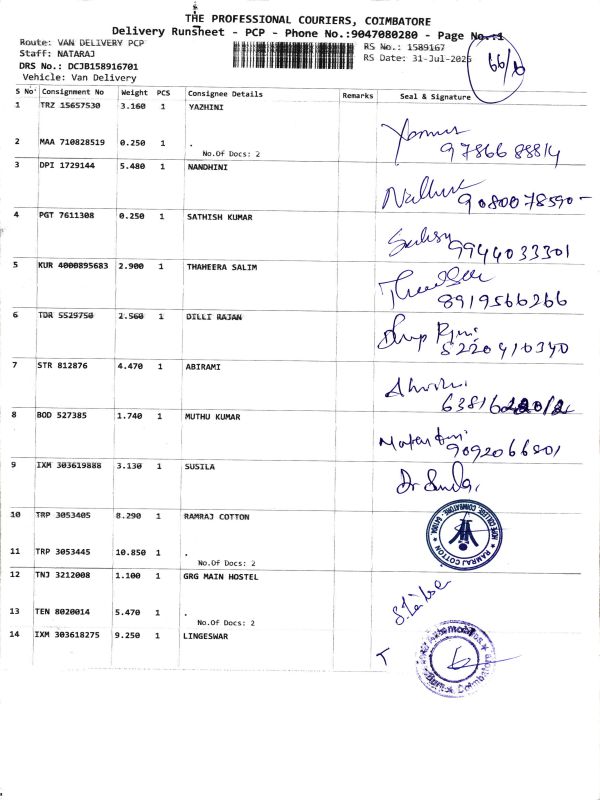 THE PROFESSIONAL COURIERS, COIMBATORE
Delivery Runsheet - PCP - Phone No.:9047080280 - Page No.:1
Route: VAN DELIVERY PCP
Staff: NATARAJ
DRS No.: DCJB158916701
Vehicle: Van Delivery
RS No.: 1589167
RS Date: 31-Jul-2025
S No Consignment No Weight PCS Consignee Details Remarks Seal & Signature
1 TRZ 15657530 3.160 1 YAZHINI
2 MAA 710828519 0.250 1 .
No.Of Docs: 2
9786688814
3 DPI 1729144 5.480 1 NANDHINI
9080078590-
4 PGT 7611308 0.250 1 SATHISH KUMAR
9944033301
5 KUR 4000895683 2.900 1 THAHEERA SALIM
8919566266
6 TDR 5529750 2.560 1 DILLI RAJAN
8220410340
7 STR 812876 4.470 1 ABIRAMI
8 BOD 527385 1.740 1 MUTHU KUMAR
9092066801
9 IXM 303619888 3.130 1 SUSILA
10 TRP 3053405 8.290 1 RAMRAJ COTTON
RAMRAJ COTTON
HOPE COLLEGE, COIMBATORE
11 TRP 3053445 10.850 1 .
No.Of Docs: 2
12 TNJ 3212008 1.100 1 GRG MAIN HOSTEL
13 TEN 8020014 5.470 1 .
No.Of Docs: 2
14 IXM 303618275 9.250 1 LINGESWAR